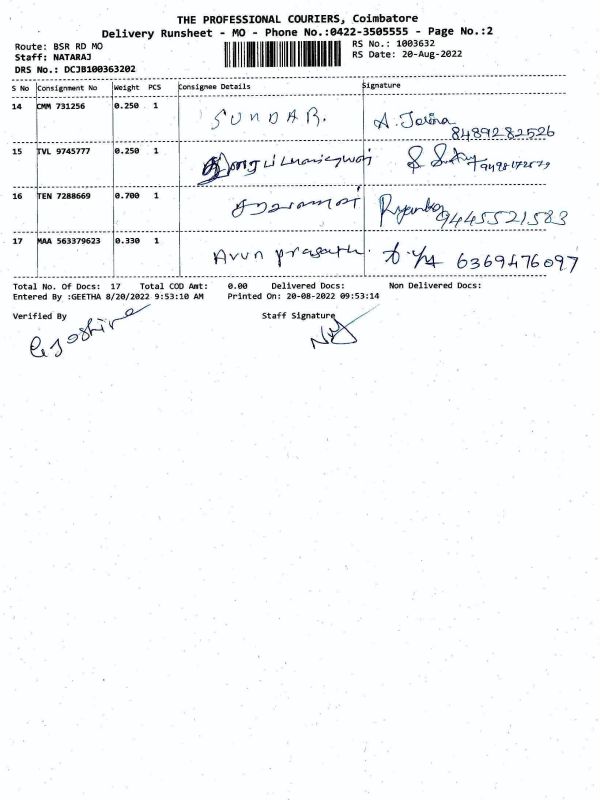 THE PROFESSIONAL COURIERS, Coimbatore
Delivery Runsheet - MO - Phone No.:0422-3505555 - Page No.:2
Route: BSR RD MO RS No.: 1003632
Staff: NATARAJ RS Date: 20-Aug-2022
DRS No.: DCJB100363202
S No Consignment No Weight PCS Consignee Details Signature
14 CMM 731256 0.250 1 SUNDAR. A.
8489282526
15 TVL 9745777 0.250 1
16 TEN 7288669 0.700 1 9445521583
17 MAA 563379623 0.330 1 Arun prasath. 6369476097
Total No. Of Docs: 17 Total COD Amt: 0.00 Delivered Docs: Non Delivered Docs:
Entered By :GEETHA 8/20/2022 9:53:10 AM Printed On: 20-08-2022 09:53:14
Verified By Staff Signature